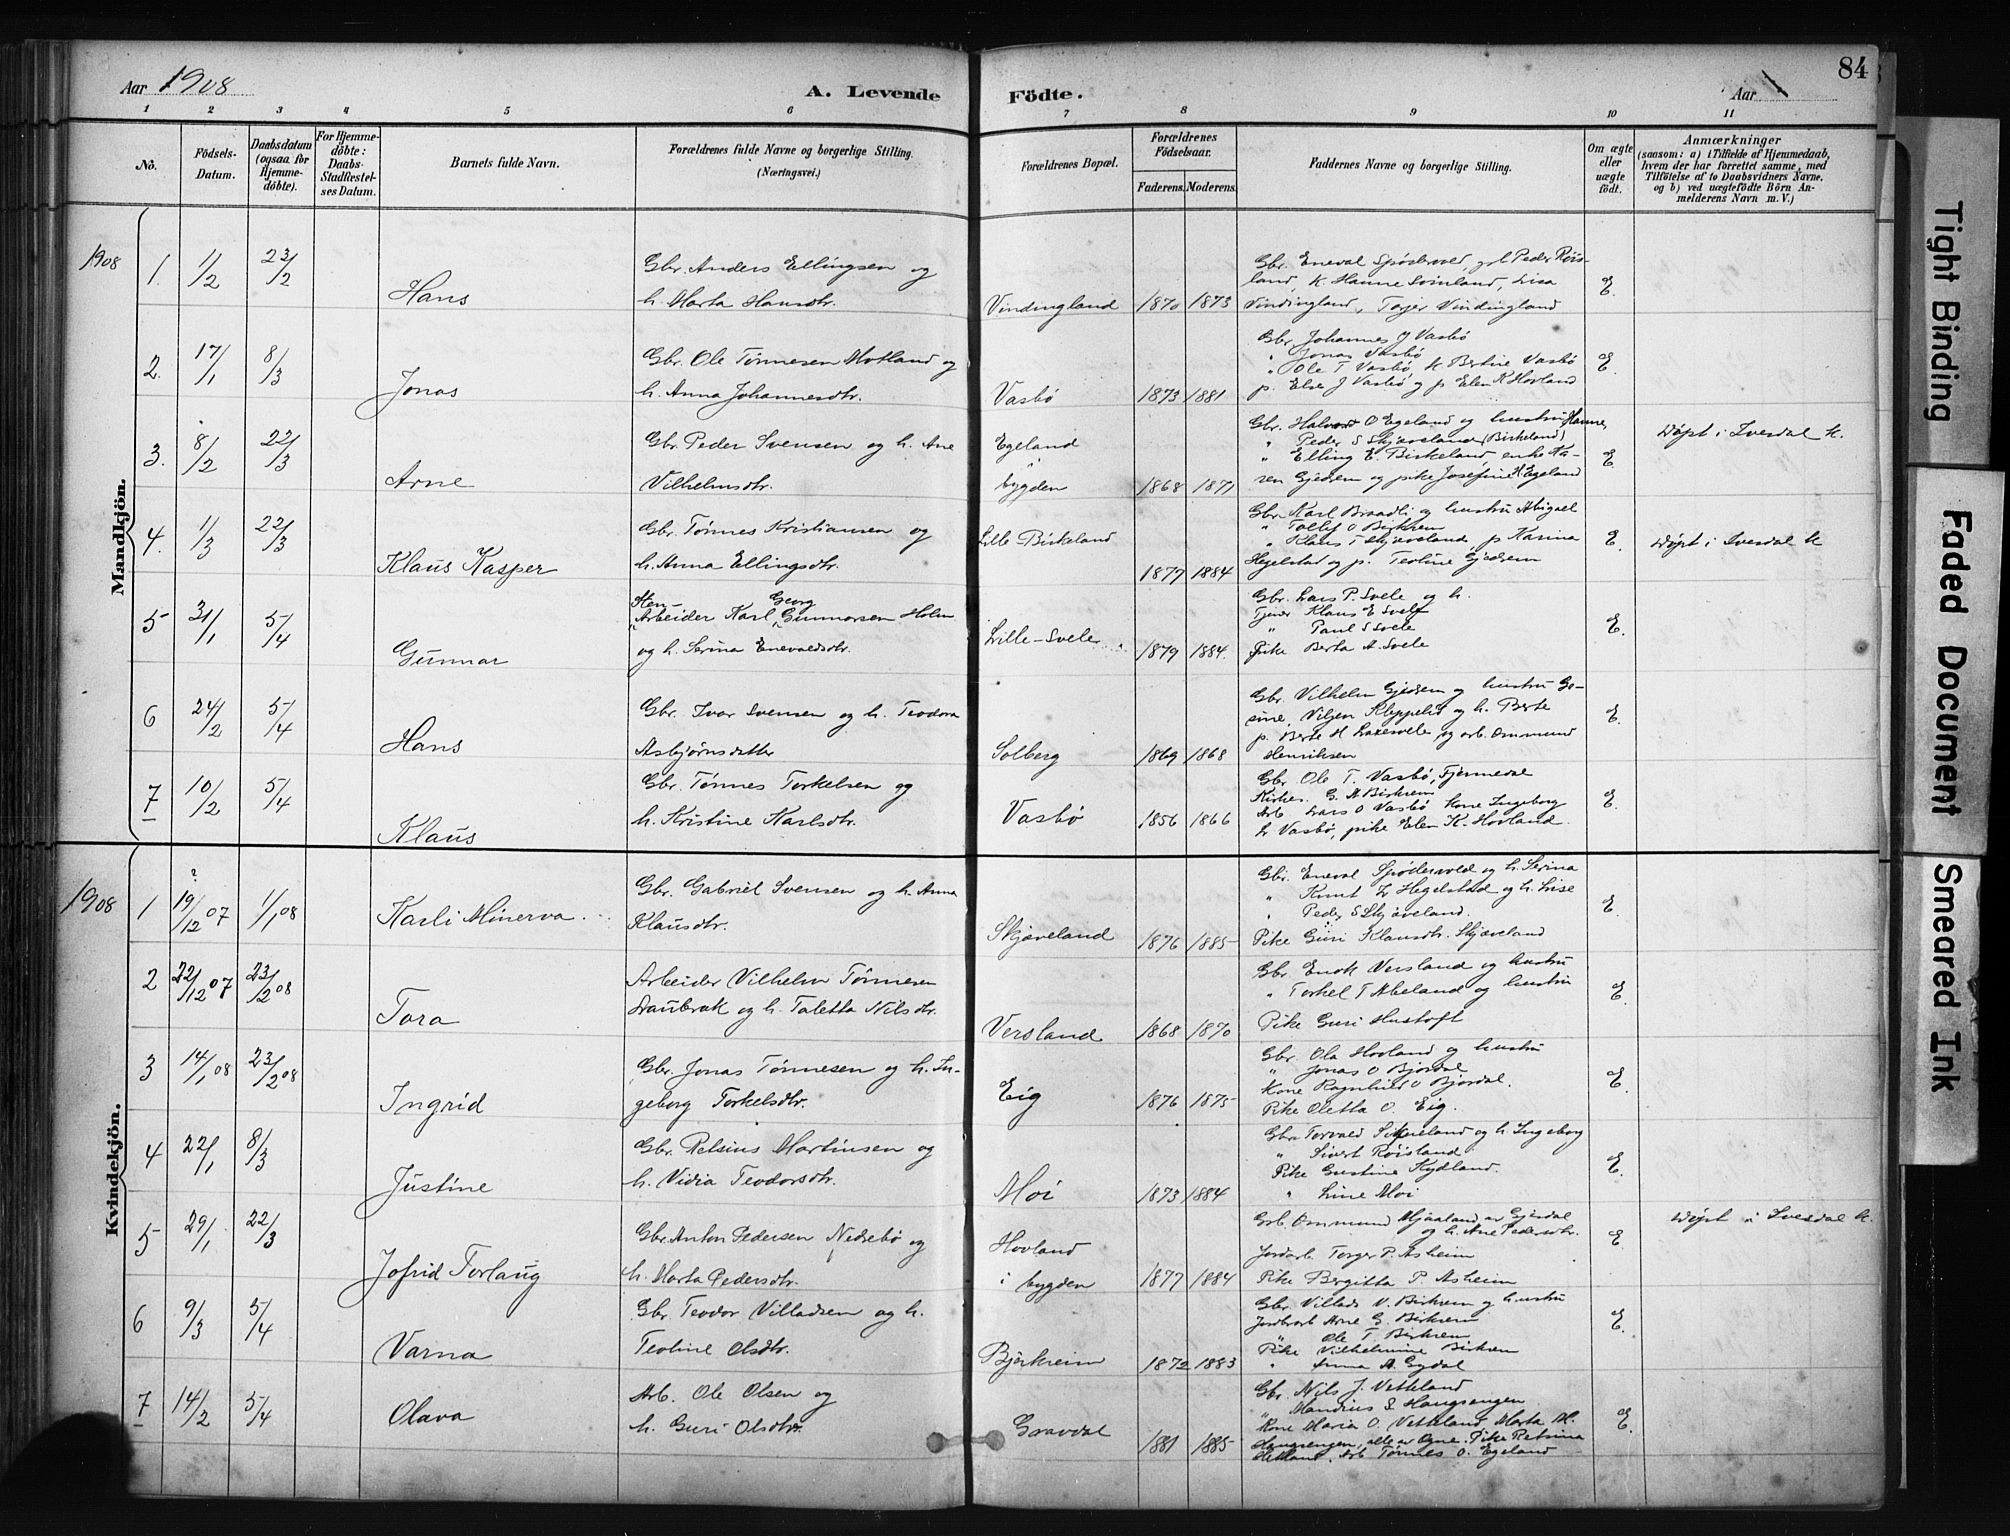 84
Aar 1908
A. Levende Födte.
Aar
1 2 3 4 5 6 7 8 9 10 11
Nô.
Födsels-Datum.
Daabsdatum (ogsaa for Hjemme-döbte).
For Hjemme-döbte: Daabs-Stadfæstel-ses Datum.
Barnets fulde Navn.
Forældrenes fulde Navne og borgerlige Stilling.
(Næringsvei.)
Forældrenes Bopæl.
Forældrenes Födselsaar.
Faderens. Moderens.
Faddernes Navne og borgerlige Stilling.
Om ægte eller uægte födt.
Anmærkninger
(saasom: a) i Tilfælde af Hjemmedaab,
hvem der har forrettet samme, med
Tilföielse af to Daabsvidners Navne,
og b) ved uægtefödte Börn An-
melderens Navn m. V.)
Mandkjön.
1908
1. 1/2 23/2 Hans
Gbr. Anders Ellingsen og
h. Marta Hansdtr.
Vindingland 1870 1873
land, K. Hanne Svinland, Lisa
Vindingland, Torger Vindingland
E.
2. 17/1 8/3 Jonas
Gbr. Ole Tønnesen Motland og
h. Anna Johannesdtr.
Vasbø 1873 1881
Gbr. Johannes J Vasbø
" Jonas Vasbø
" Ole T Vasbø, K Bertine Vasbø
p. Else J Vasbø, og p Elen K Hovland
E
3. 8/2 22/3 Arne
Gbr. Peder Svensen og h. Ane
Vilhelmsdtr.
Egeland
bygden 1868 1871
Gbr. Halvord O Egeland og hustru Hanne,
" Peder S Skjæveland (Birkeland)
" Elling E. Birkeland, enke Ka-
ren Gjedrem og pike Josefine H Egeland
E.
Døpt i Ivesdal K.
4. 1/3 22/3 Klaus Kasper
Gbr. Tønnes Kristiansen og
h. Anna Ellingsdtr.
Lille-Birkeland 1877 1884
Gbr. Karl Braadli og hustru Abigael
" Tollef O Birkrem
" Klaus T Skjæveland, p Karina
Hegelstad og p. Teoline Gjedrem
E.
Døpt i Ivesdal K
5 31/1 5/4 Gunnar
Georg
Arbeider Karl Gunnarsen Holm
og h. Serina Enevaldsdtr.
Lille-Svele 1879 1884.
Gbr. Lars P. Svele og h.
Tjener Klaus E Svele
" Paul S Svele
Pike Berta A. Svele
E.
6 24/2 5/4 Hans
Gbr. Ivar Svensen og h. Teodora
Asbjørnsdatter
Solberg 1869 1868
Gbr. Vilhelm Gjedrem og hustru Ge-
sine, Viljen Kleppelid og h. Berte
p. Berte H Laxesvele, og arb. Ommund
Henriksen
E.
7 10/2 5/4 Klaus
Gbr. Tønnes Torkelsen og
h. Kristine Karlsdtr.
Vasbø 1856 1866
Gbr. Ole T. Vasbø,
Kirkes. G. A Birkrem
Arb Lars O Vasbø Kone Ingeborg
L Vasbø, pike Elen K. Hovland.
E.
Kvindekjön.
1908
1 ? 19/12 07 1/1 08 Karli Minerva
Gbr. Gabriel Svensen og h. Anna
Klausdtr.
Skjæveland 1876 1885
Gbr. Eneval Spødervold og h. Serina
" Knut L Hegelstad og h. Lise
" Peder S Skjæveland.
Pike Guri Klausdtr. Skjæveland
E.
2 22/12 07 23/2 08 Tora
Arbeider Vilhelm Tønnesen
Draubrak og h. Taletta Nilsdtr.
Versland 1868 1870
Gbr. Enok Versland og hustru
" Torkel T Abeland og hustru
Pike Guri Hustoft
E.
3 14/1 08 23/2 08 Ingrid
Gbr. Jonas Tønnesen og h. In-
geborg Torkelsdtr.
Eig 1876 1875
Gbr. Ola Hovland og hustru
" Jonas O Bjordal
Kone Ragnhild O Bjordal.
Pike Oletta O. Eig.
E.
4 22/1 8/3 Justine
Gbr. Retsius Martinsen og
h. Vidia Teodorsdtr.
Moi 1873 1884
" Sivert Røisland
Pike Gustine Kydland.
" Line Moi
E.
5 29/1 22/3 Jofrid Torlaug
Gbr. Anton Pedersen Nedrebø og
h. Marta Pedersdtr.
Hovland
i bygden 1877 1884
Grb. Ommund Mjaaland av Gjesdal
og h. Ane Pedersdtr.
Jordarb. Torger P. Asheim
Pike Bergitta P. Asheim
E
Døpt i Ivesdal K.
6 9/3 5/4 Varna
Gbr. Teodor Villadsen og h.
Teoline Olsdtr.
Bjerkreim 1872 1883
Gbr. Villads V. Birkrem og hustru
Jordbrarb Arne G. Birkrem
" Ole T. Birkrem
Pike Vilhelmine Birkrem
" Anna A. Gydal
E.
7 14/2 5/4 Olava
Arb. Ole Olsen og
h. Guri Olsdtr.
Gravdal 1881 1885
Gbr. Nils J. Vetteland
" Mandius S. Haugsengen
Kone Maria O. Vetteland Marta M.
Haugsengen, alle av Ogne. Pike Retsina
Hetland. Arb Tønnes O. Egeland
E.
Tight Binding
Faded Document
Smeared Ink